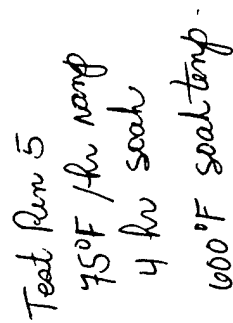 Test Run 5
75°F/hr ramp
4 hr soak
600°F soak temp.